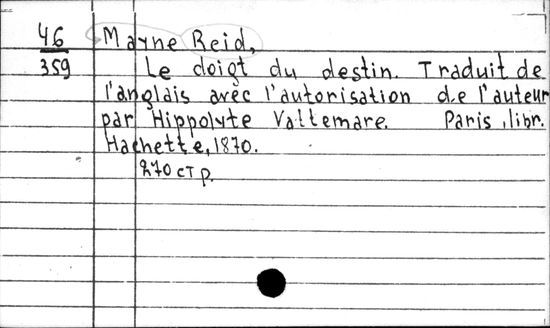 46 Mayne Reid,
359 Le doigt du destin. Traduit de
l'anglais avec l'autorisation de l'auteur
par Hippolyte Vattemare. Paris, libr.
Hachette, 1870.
270 стр.